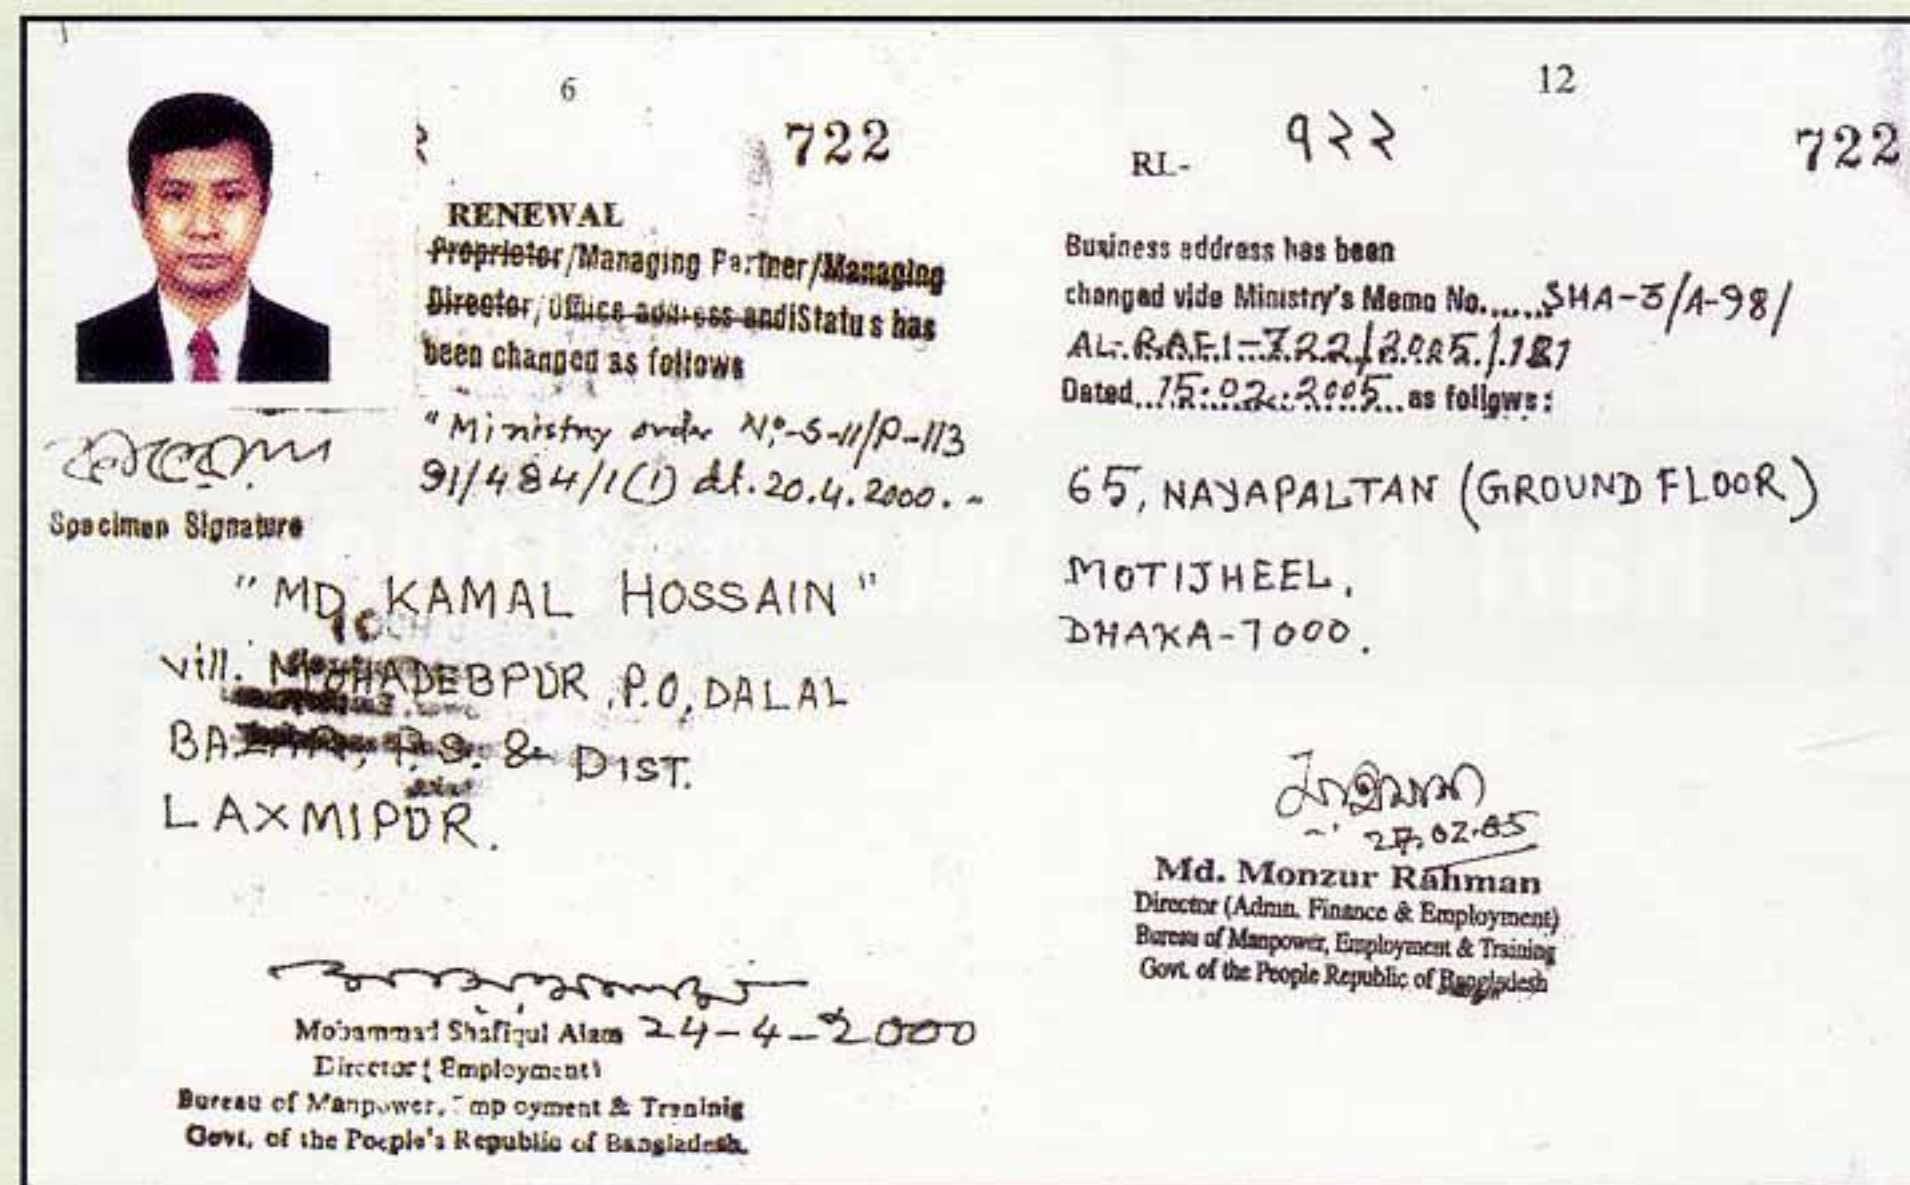 6
722
RENEWAL
Proprietor/Managing Partner/Managing
Director, Office address and Status has
been changed as follows
"Ministry order No-S-11/P-113
91/484/1(1) dt. 20.4.2000.-
Specimen Signature
"MD. KAMAL HOSSAIN"
Vill. MOHADEBPUR, P.O, DALAL
BAZAR, P.S. & DIST.
LAXMIPUR.
24-4-2000
Mohammad Shafiqul Alam
Director (Employment)
Bureau of Manpower, Emp oyment & Traninig
Govt. of the People's Republic of Bangladesh.
12
RL- ৭২২
722
Business address has been
changed vide Ministry's Memo No......SHA-3/A-98/
AL-RAFI-722/2005/181
Dated...15.02.2005... as follows:
65, NAYAPALTAN (GROUND FLOOR)
MOTIJHEEL,
DHAKA-1000.
27.02.05
Md. Monzur Rahman
Director (Admn. Finance & Employment)
Bureau of Manpower, Employment & Training
Govt. of the People Republic of Bangladesh